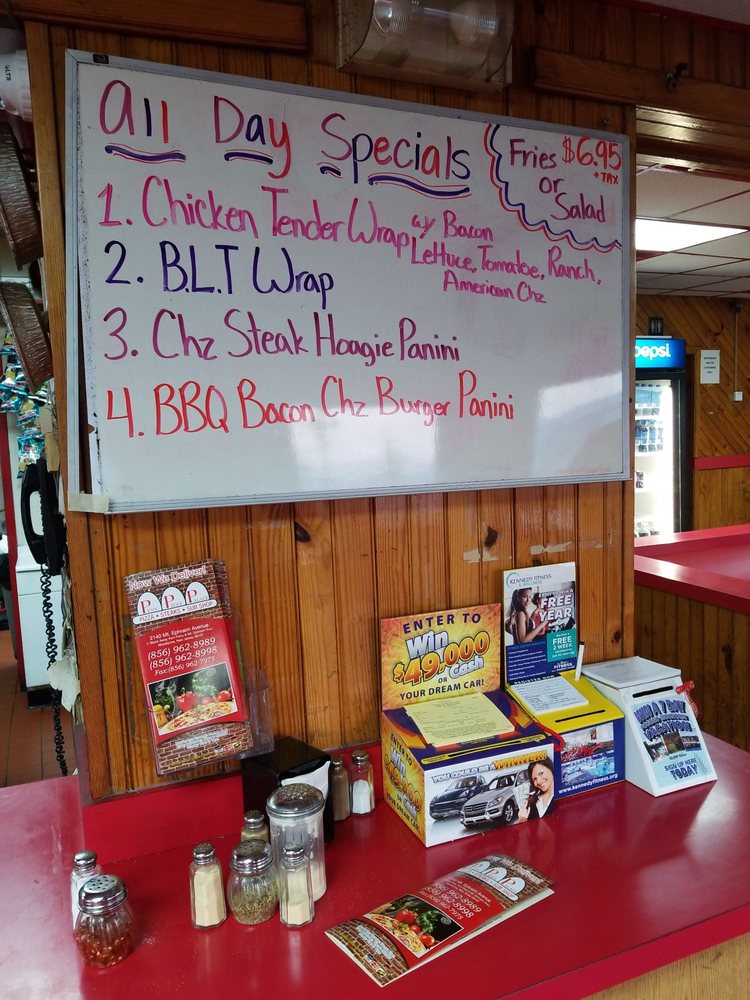 All Day Specials
Fries or Salad
$6.95
+ TAX
1. Chicken Tender Wrap w/ Bacon
Lettuce, Tomatoe, Ranch,
American Chz
2. B.L.T Wrap
3. Chz Steak Hoagie Panini
4. BBQ Bacon Chz Burger Panini
pepsi
Now We Deliver!
PIZZA • STEAKS • SUB SHOP
2140 Mt. Ephraim Avenue
(856) 962-8989
(856) 962-8998
Fax:(856) 962-7975
ENTER TO
Win
$49,000
Cash
OR
YOUR DREAM CAR!
ENTER TO
Win
YOU COULD BE A WINNER!
KENNEDY FITNESS
& WELLNESS
FREE
YEAR
FREE
2 WEEK
REGISTER NOW
www.kennedyfitness.org
WIN A 7 DAY
VACATION
SIGN UP HERE
TODAY
(856) 962-8989
(856) 962-8998
(856) 962-7975